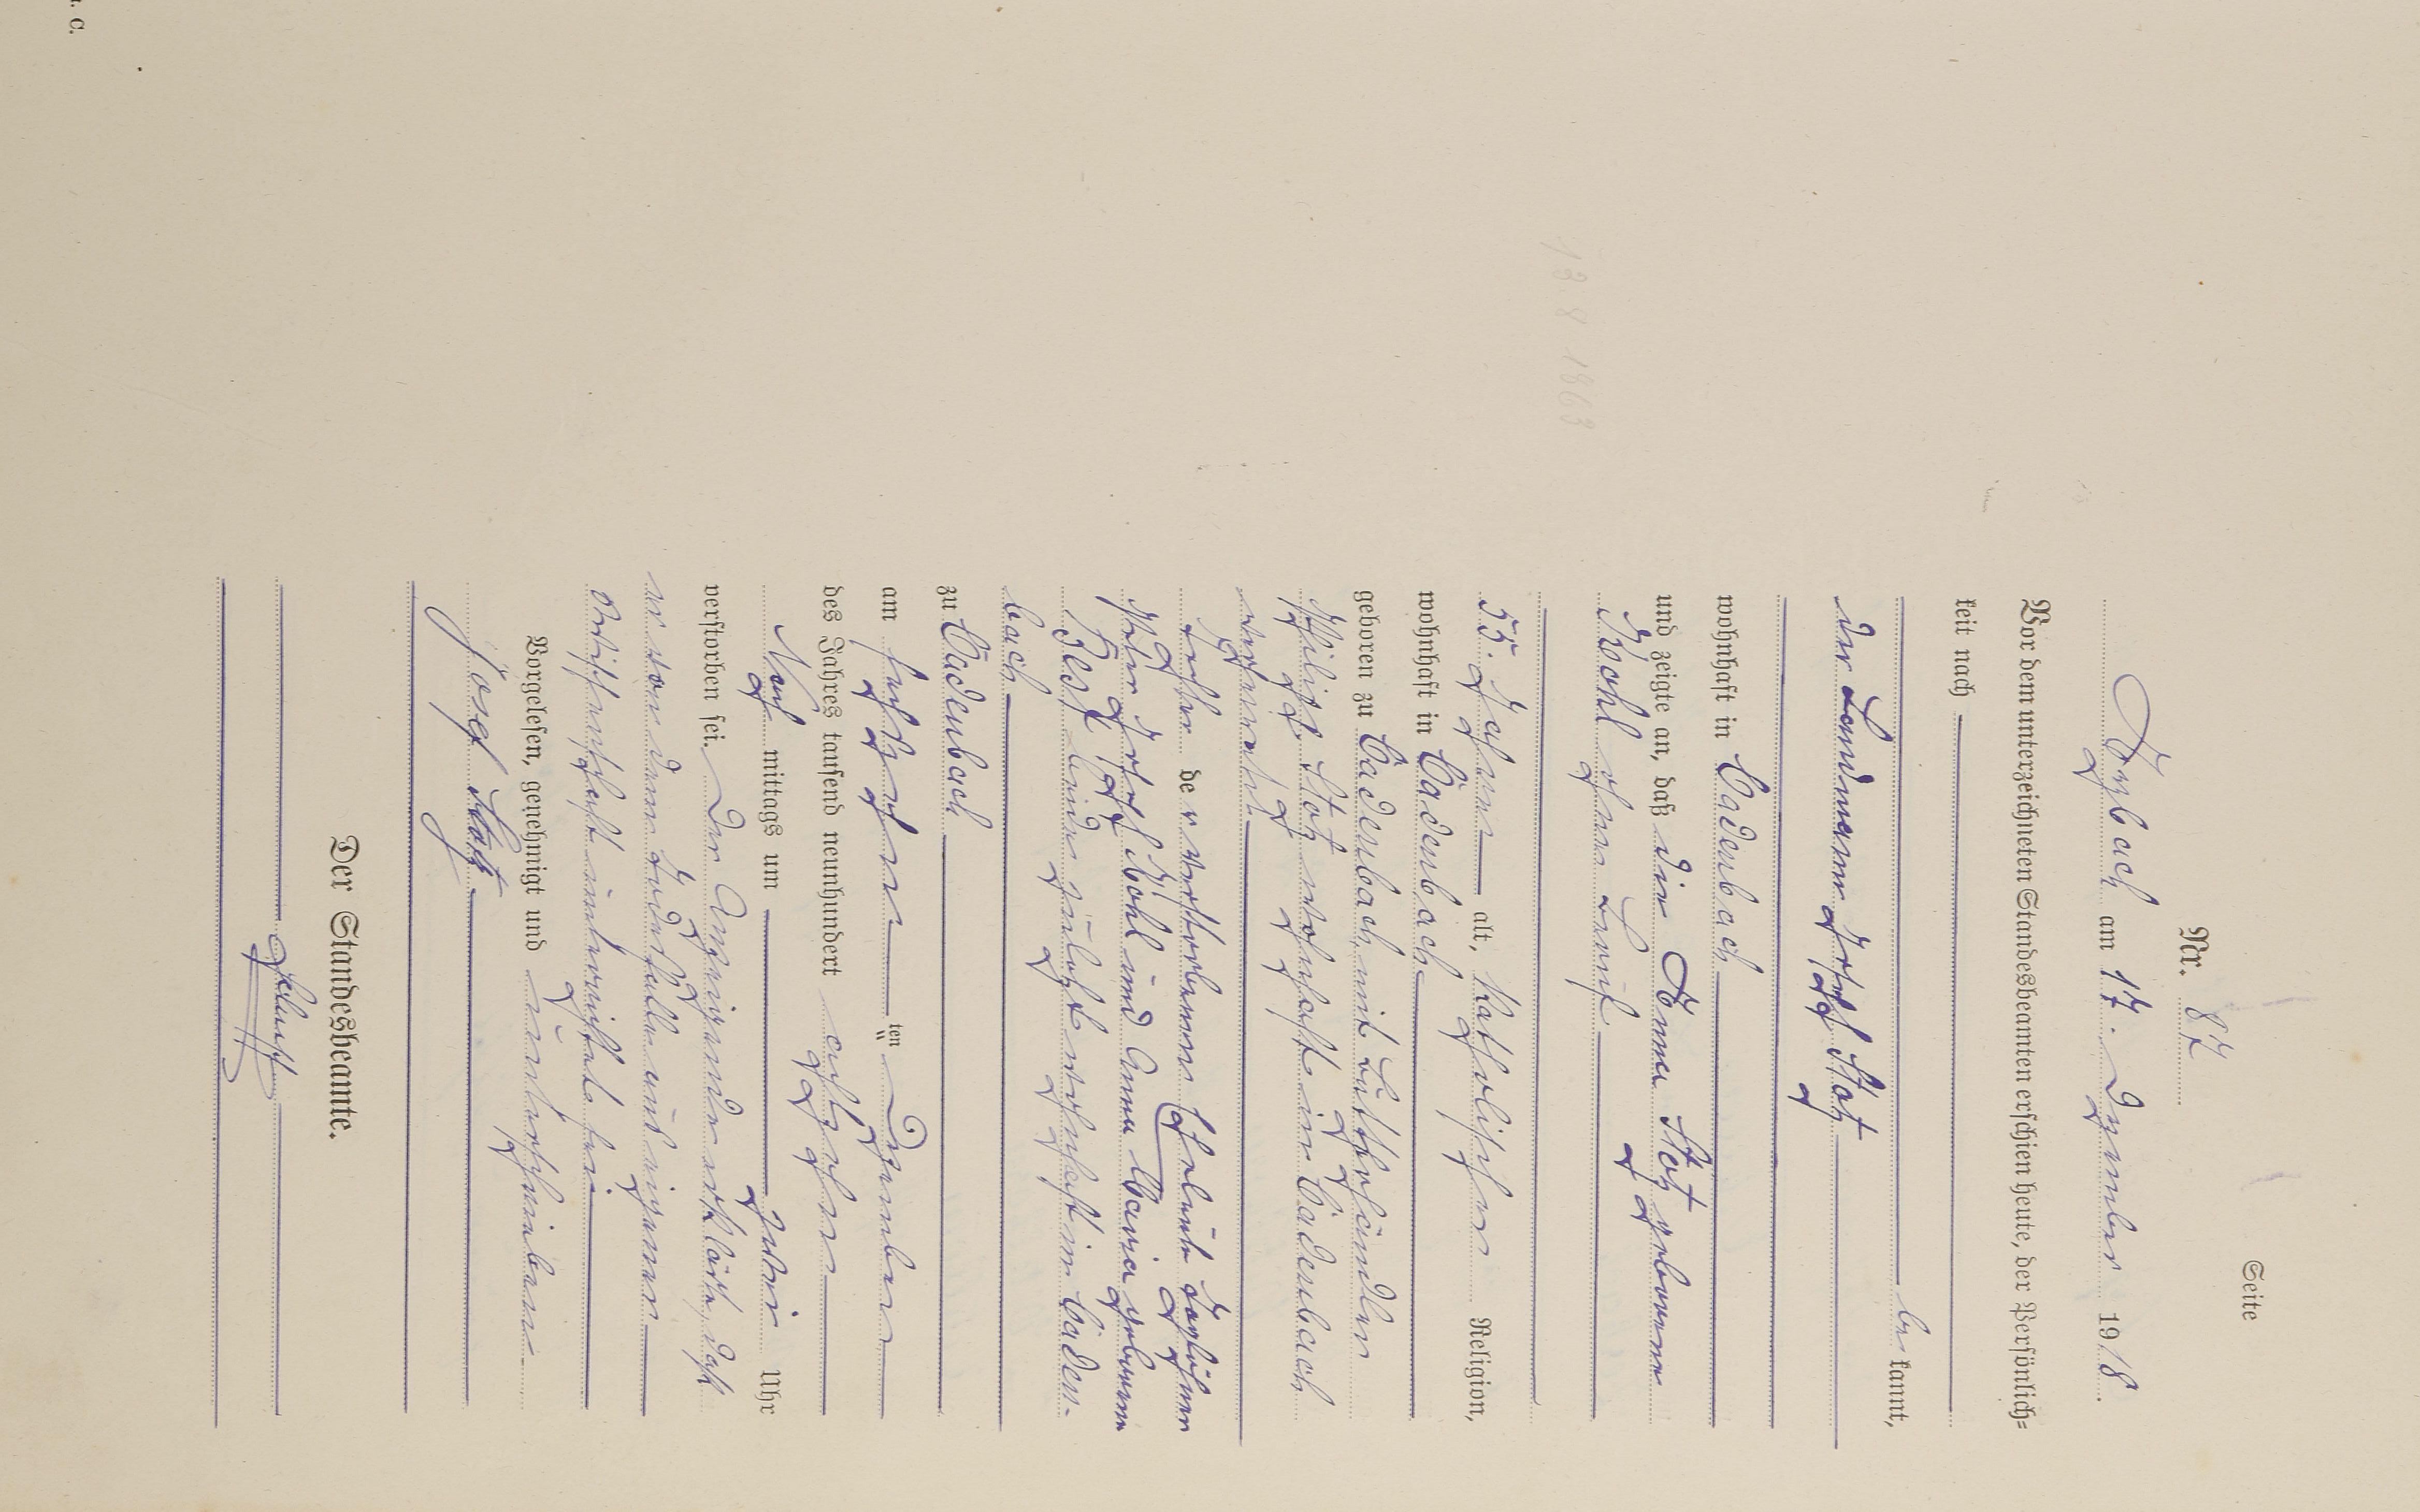 Seite
Nr. 87
Arzbach am 17. Dezember 1918.
Vor dem unterzeichneten Standesbeamten erschien heute, der Persönlich=
keit nach
be kannt,
der Landmann Josef Stotz
wohnhaft in Cadenbach
und zeigte an, daß die Anna Stotz geborene
Böhl ohne Beruf
13. 8 1863
55. Jahre alt, katholischer Religion,
wohnhaft in Cadenbach
geboren zu Cadenbach, mit
Philipp Stotz wohnhaft in Cadenbach
verheiratet
Tochter de r verstorbenen Eheleute
Josef Böhl und Anna Maria geborene
beide zuletzt wohnhaft in Caden-
bach
zu Cadenbach
am sechzehn ten Dezember
des Jahres tausend neunhundert achtzehn
Nach mittags um zwei Uhr
verstorben sei. Der Anzeigende erklärte, daß
er von dem Todesfalle aus eigener
Wissenschaft unterrichtet sei
Vorgelesen, genehmigt und unterschrieben
Josef Stotz
Der Standesbeamte.
. c.